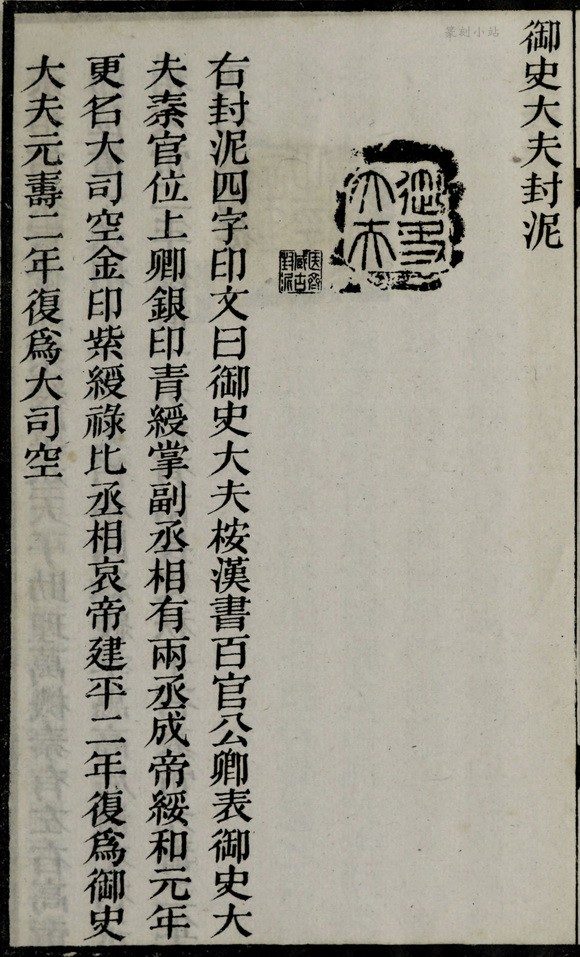 御史大夫封泥
御史大夫
右封泥四字印文曰御史大夫桉漢書百官公卿表御史大
夫秦官位上卿銀印青綬掌副丞相有兩丞成帝綏和元年
更名大司空金印紫綬祿比丞相哀帝建平二年復爲御史
大夫元壽二年復爲大司空
篆刻小站